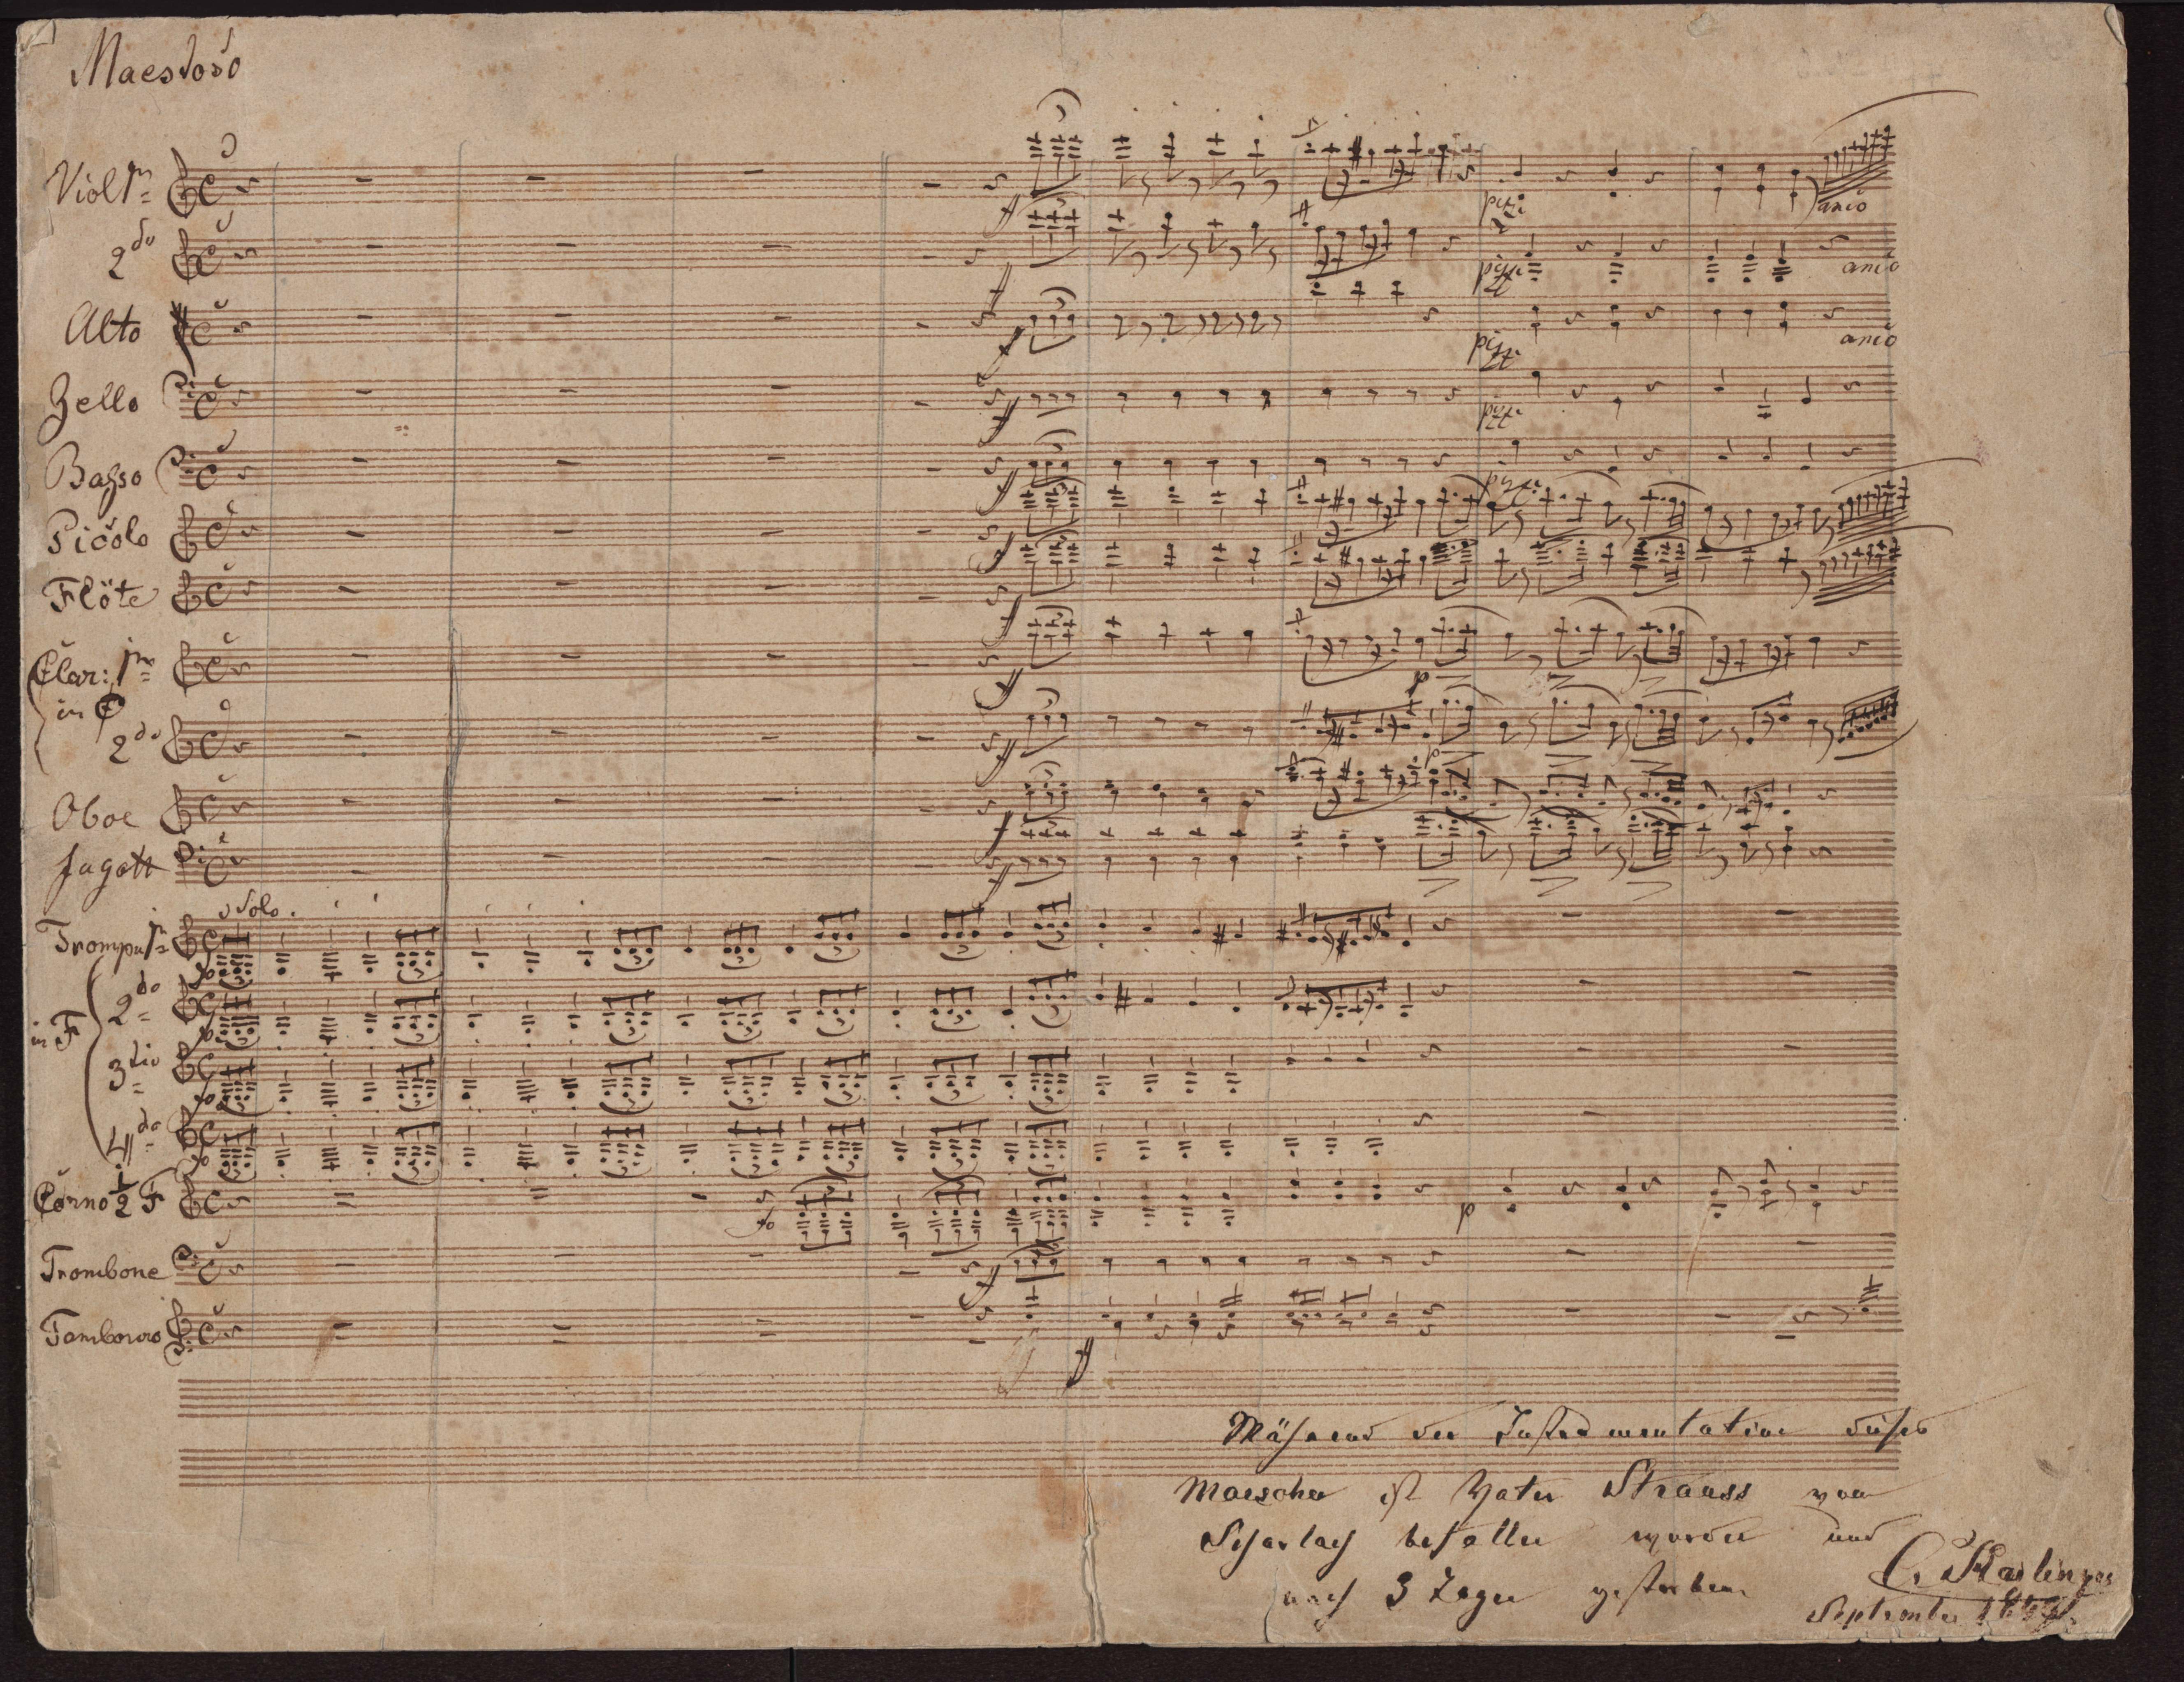 Maestoso
Viol 1mo
2do
Alto
Zello
Basso
Picolo
Flöte
Clar: 1mo
in C
2do
Oboe
Fagott
Solo.
Trompa 1mo
2do
in F
3tio
4do
Corno 1/2 F
Trombone
Tamborro
f f f f f f f f f f f f f
pizz arco
pizz arco
pizz arco
pizz
pizz
p
p
p
Während der Instrumentation dieses
Marsches ist Vater Strauss von
Scharlach befallen worden und
nach 3 Tagen gestorben
September 1849